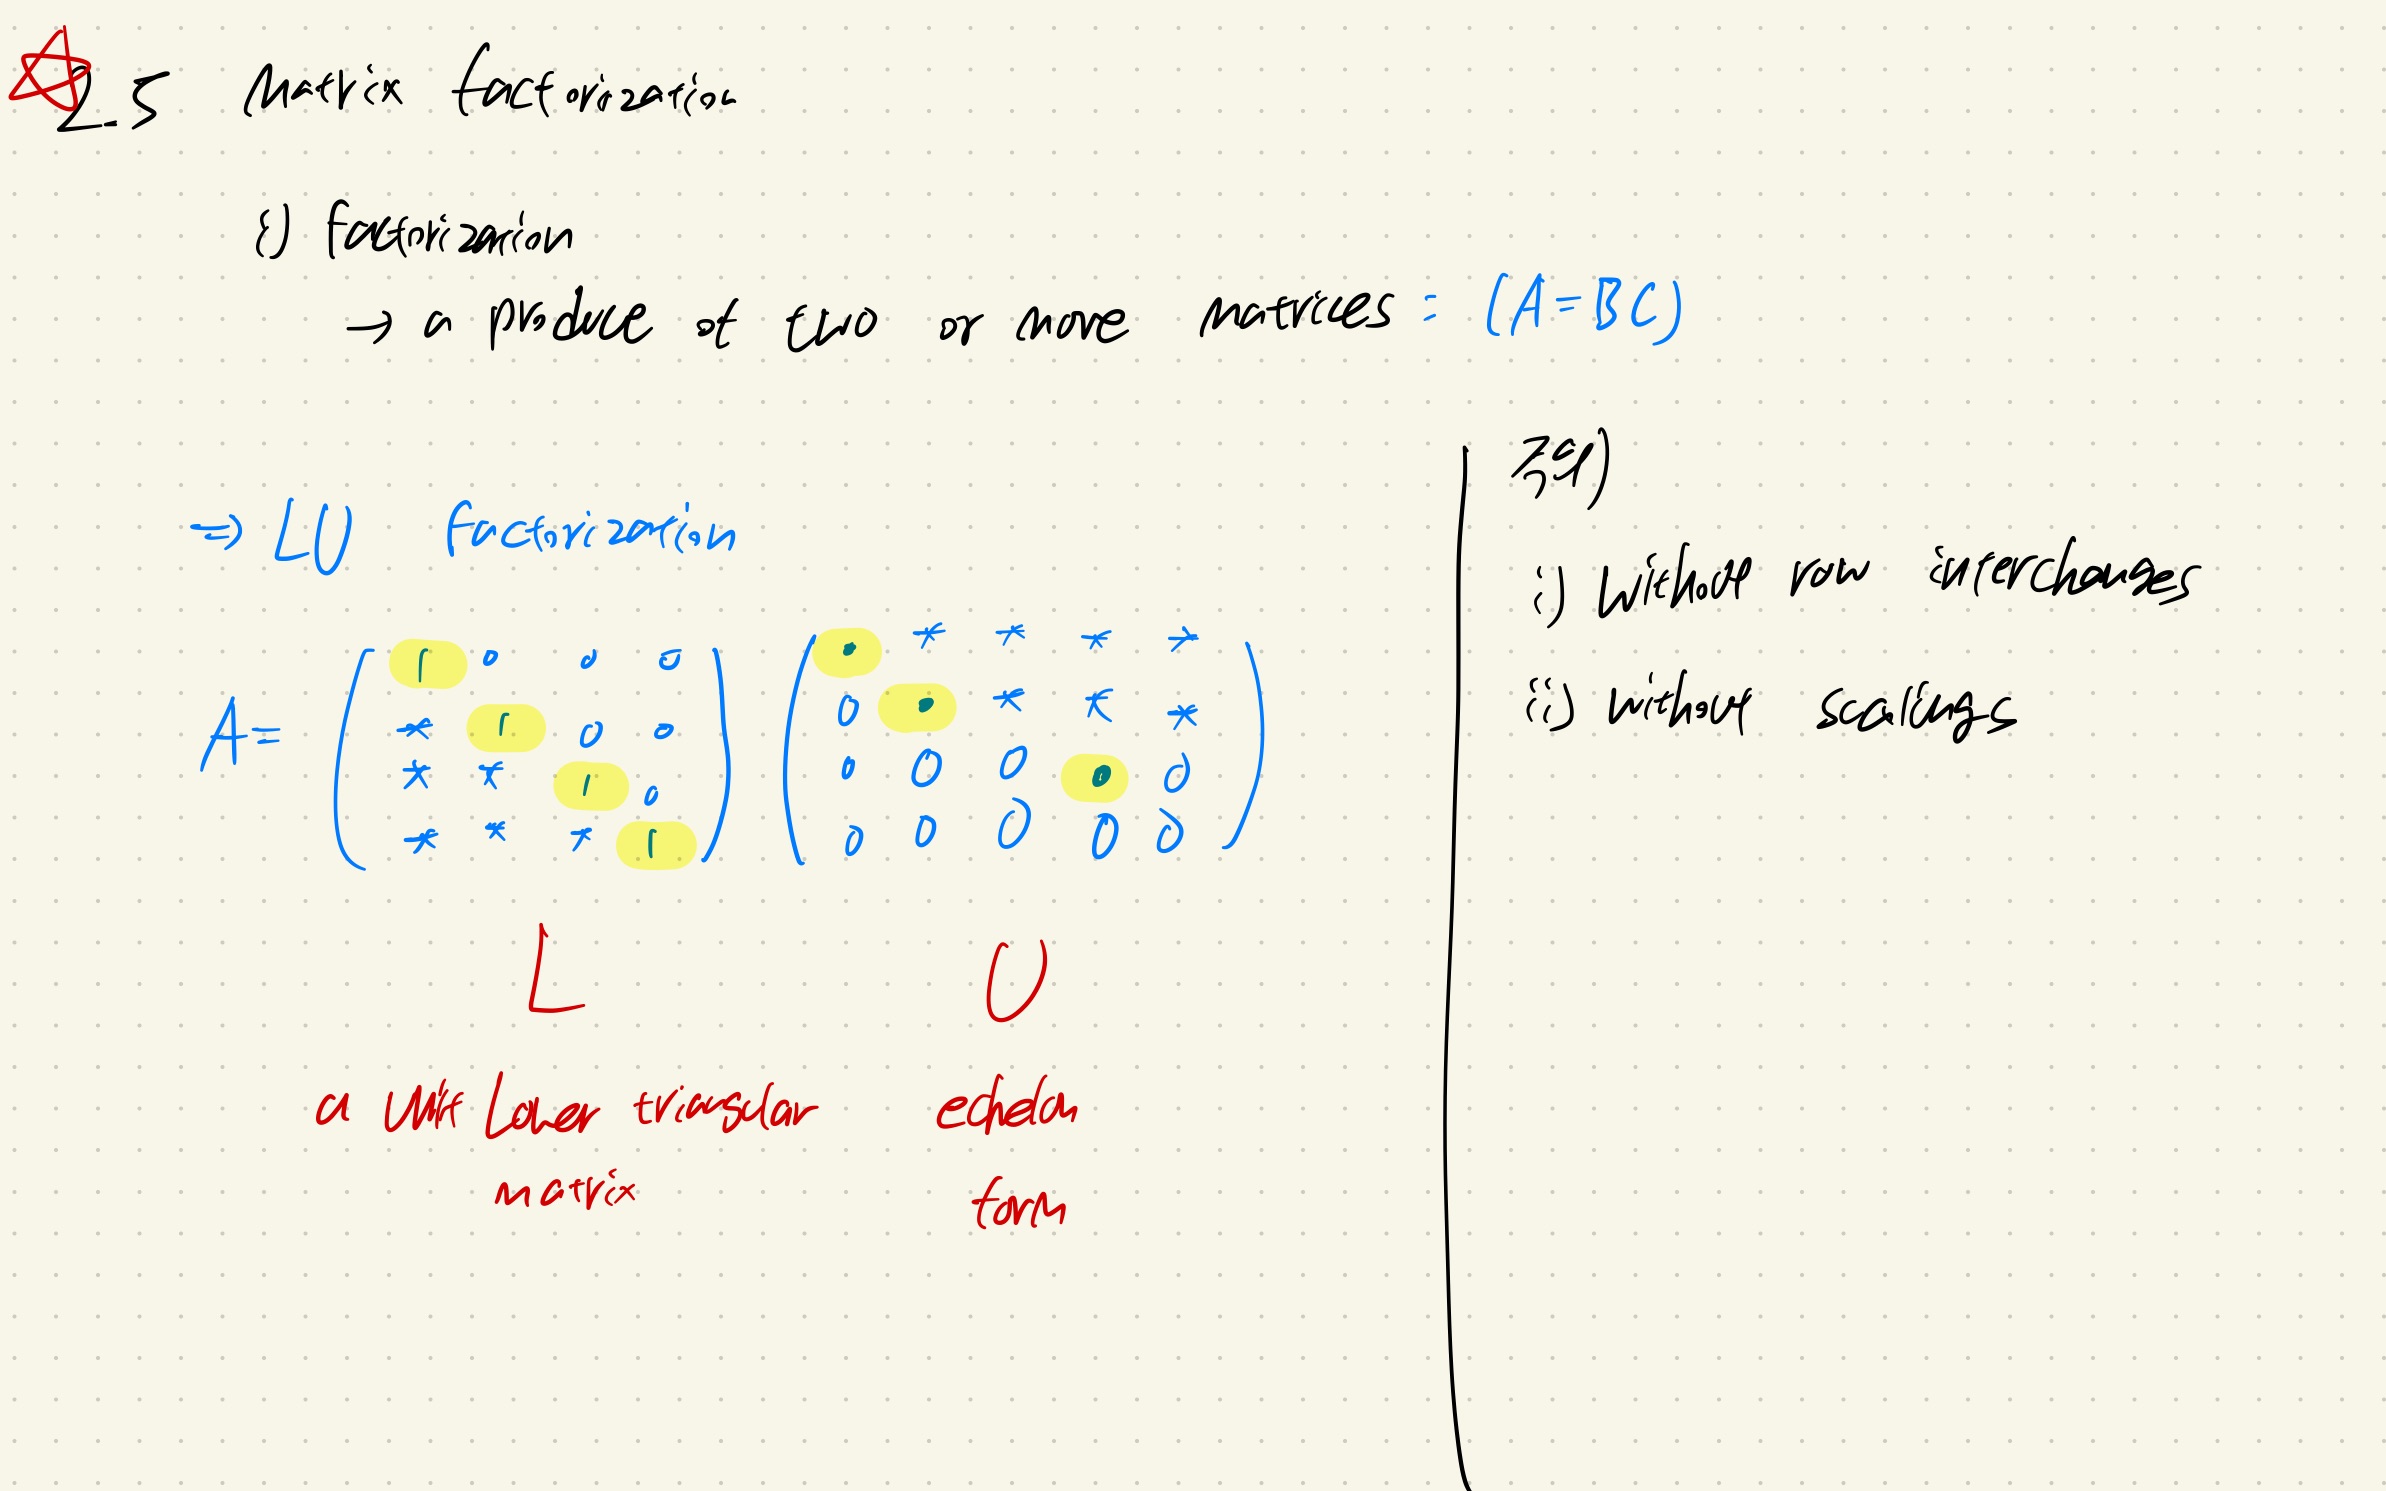 2.5 Matrix factorization
i) factorization
→ a produce of two or more matrices : (A=BC)
⇒ LU factorization
A= ( 1 0 0 0 ) ( • * * * * )
( * 1 0 0 ) ( 0 • * * * )
( * * 1 0 ) ( 0 0 0 • 0 )
( * * * 1 ) ( 0 0 0 0 0 )
L U
a unit Lower triangular echelon
matrix form
i) without row interchanges
ii) without scalings